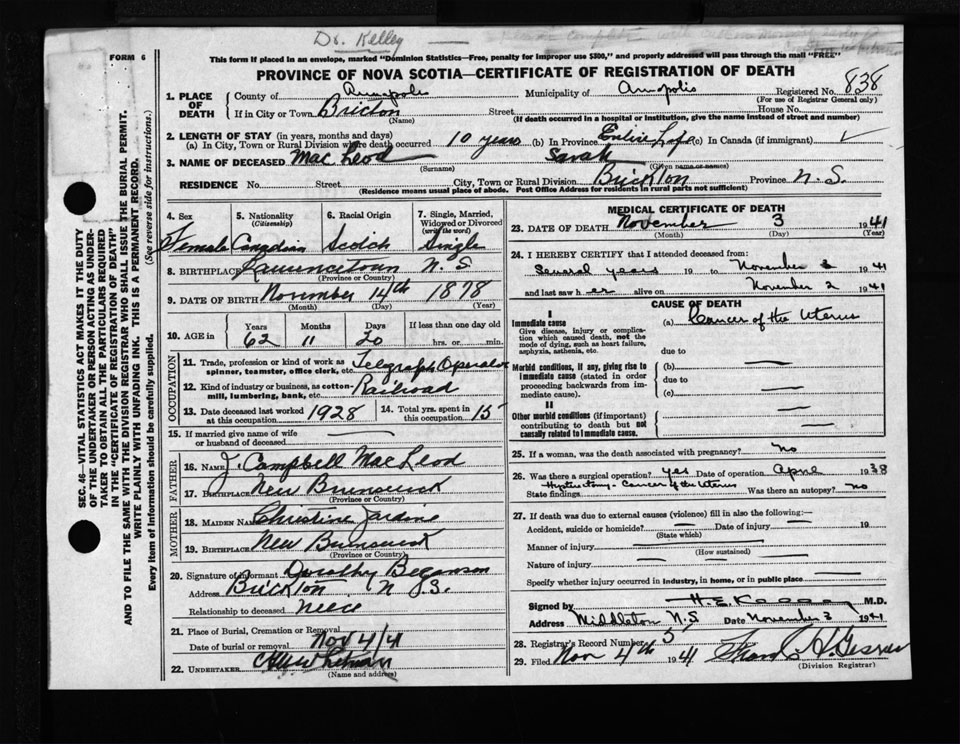 Dr. Kelley
FORM 6
This form if placed in an envelope, marked "Dominion Statistics—Free, penalty for improper use $300," and properly addressed will pass through the mail "FREE"
PROVINCE OF NOVA SCOTIA—CERTIFICATE OF REGISTRATION OF DEATH
1. PLACE OF DEATH
County of Annapolis Municipality of Annapolis Registered No. 838
(For use of Registrar General only)
If in City or Town Brickton Street House No.
(Name) (If death occurred in a hospital or institution, give the name instead of street and number)
2. LENGTH OF STAY (in years, months and days)
(a) In City, Town or Rural Division where death occurred 10 years (b) In Province Entire Life (c) In Canada (if immigrant)
3. NAME OF DECEASED Mac Leod Sarah
(Surname) (Given name or names)
RESIDENCE No. Street City, Town or Rural Division Brickton Province N.S.
(Residence means usual place of abode. Post Office Address for residents in rural parts not sufficient)
4. Sex Female
5. Nationality (Citizenship) Canadian
6. Racial Origin Scotch
7. Single, Married, Widowed or Divorced (write the word) Single
8. BIRTHPLACE Lawrencetown N.S.
(Province or Country)
9. DATE OF BIRTH November 14th 1878
(Month) (Day) (Year)
10. AGE in Years Months Days If less than one day old
62 11 20 hrs. or min.
OCCUPATION
11. Trade, profession or kind of work as spinner, teamster, office clerk, etc. Telegraph Operator
12. Kind of industry or business, as cotton-mill, lumbering, bank, etc. Railroad
13. Date deceased last worked at this occupation 1928
14. Total yrs. spent in this occupation 15
15. If married give name of wife or husband of deceased
FATHER
16. NAME J. Campbell Mac Leod
17. Birthplace New Brunswick
(Province or Country)
MOTHER
18. MAIDEN NAME Christine Jardine
19. BIRTHPLACE New Brunswick
(Province or Country)
20. Signature of informant Dorothy
Address Brickton N.S.
Relationship to deceased neice
21. Place of Burial, Cremation or Removal
Date of burial or removal Nov 4/41
22. UNDERTAKER
(Name and address)
MEDICAL CERTIFICATE OF DEATH
23. DATE OF DEATH November 3 1941
(Month) (Day) (Year)
24. I HEREBY CERTIFY that I attended deceased from:
Several years 19 to November 1941
and last saw her alive on November 2 1941
CAUSE OF DEATH
I
Immediate cause
Give disease, injury or complication which caused death, not the mode of dying, such as heart failure, asphyxia, asthenia, etc.
(a) Cancer of the Uterus
due to
Morbid conditions, if any, giving rise to immediate cause (stated in order proceeding backwards from immediate cause).
(b)
due to
(c)
II
Other morbid conditions (if important) contributing to death but not causally related to immediate cause.
25. If a woman, was the death associated with pregnancy? No
26. Was there a surgical operation? yes Date of operation April 1938
State findings Hysterectomy - Cancer of the Uterus Was there an autopsy? No
27. If death was due to external causes (violence) fill in also the following:—
Accident, suicide or homicide? Date of injury 19
(State which)
Manner of injury
(How sustained)
Nature of injury
Specify whether injury occurred in industry, in home, or in public place
Signed by H.E. Kelley M.D.
Address Middleton N.S. Date November 3 1941
28. Registrar's Record Number 5
29. Filed Nov 4th 1941
(Division Registrar)
SEC. 46—VITAL STATISTICS ACT MAKES IT THE DUTY
OF THE UNDERTAKER OR PERSON ACTING AS UNDER-
TAKER TO OBTAIN ALL THE PARTICULARS REQUIRED
IN THE "CERTIFICATE OF REGISTRATION OF DEATH"
AND TO FILE THE SAME WITH THE DIVISION REGISTRAR WHO SHALL ISSUE THE BURIAL PERMIT.
WRITE PLAINLY WITH UNFADING INK. THIS IS A PERMANENT RECORD.
Every item of information should be carefully supplied. (See reverse side for instructions.)